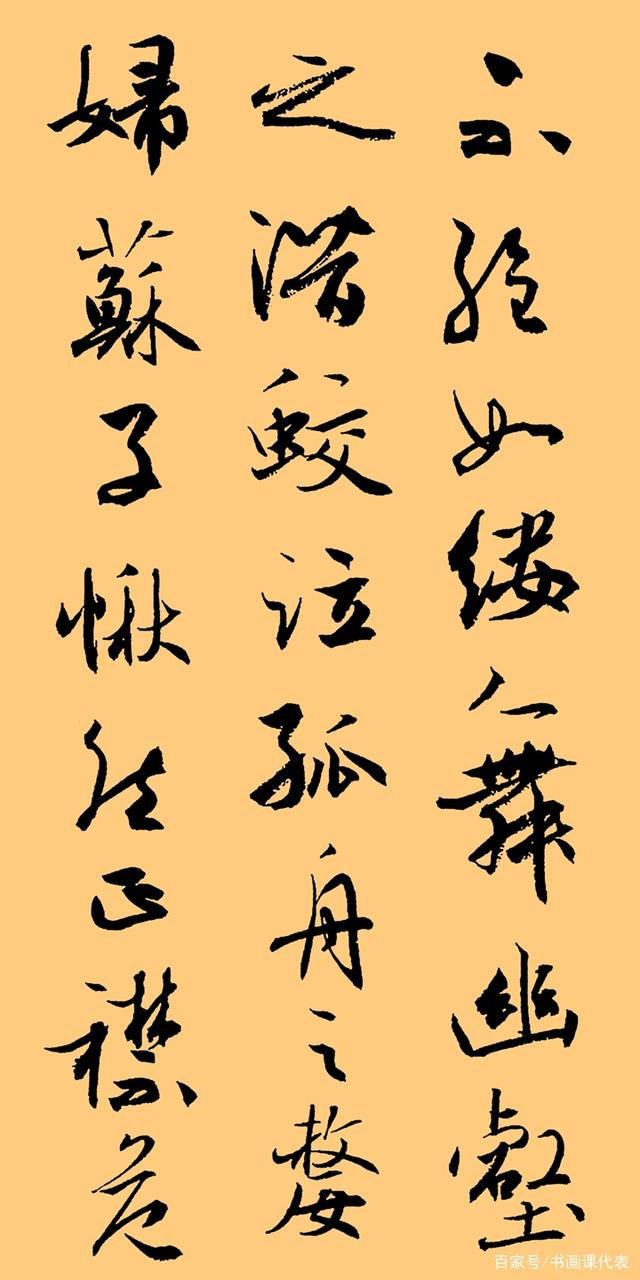 不絕如縷舞幽壑
之潛蛟泣孤舟之嫠
婦蘇子愀然正襟危
百家号/书画课代表